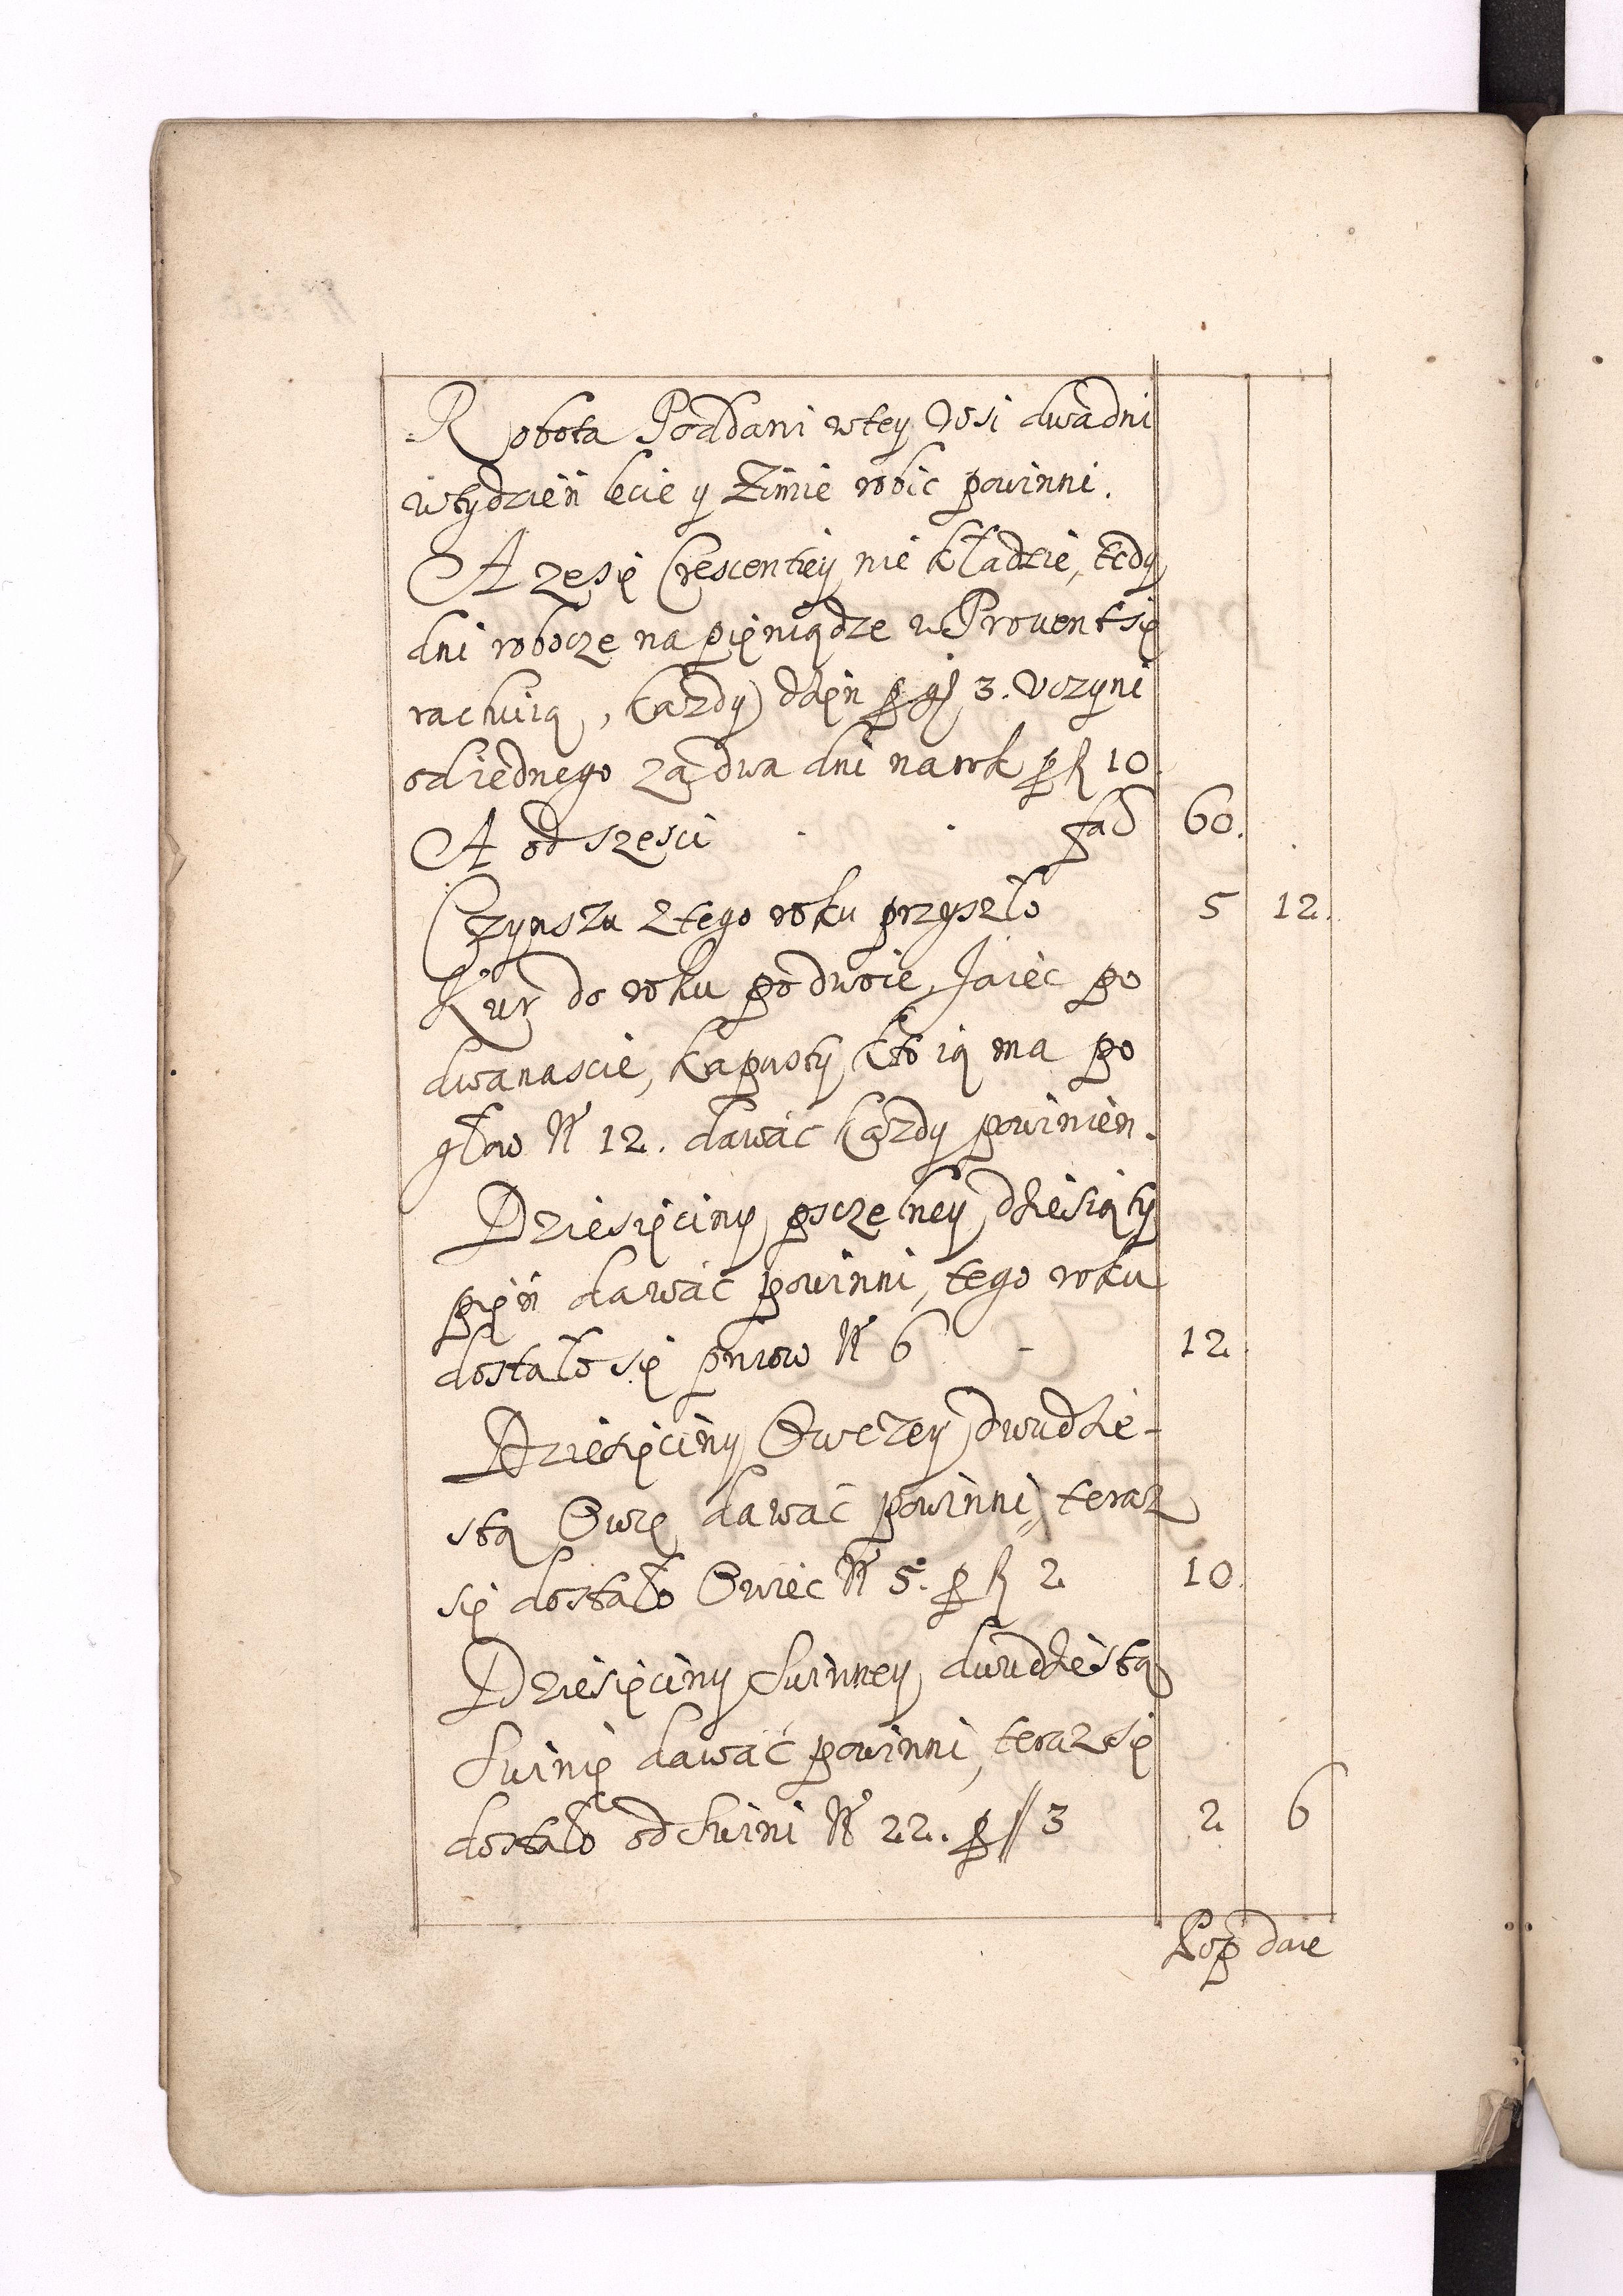 Robota Poddani wtey Wsi dwa dni
wtydzień lecie y Zimie robic powinni.
A ze się Crescentiey nie kładzie, tedy
dni robocze na pięniądze w Prouent się
rachuią, każdy dzięn p gs 3. Vczyni
od iednego za dwa dni na rok p fl 10
A od szesci fad 60.
Czynszu Ztego roku przyszło 5 12.
Kur do roku po dwoie, Jaiec po
dwanascie, kapusty kto ią ma po
głow N 12. dawać każdy powinien.
Dziesięciny psczelney dziesiąty
pięń dawać powinni, tego roku
dostało się pniow N 6 - 12.
Dziesięciny Owczey dwudzie-
stą Owcę dawać powinni, teraz
się dostało Owiec N 5. p fl 2 10.
Dziesięciny swinney dwudziestą
swinię dawać powinni, teraz się
dostało od swini N 22. p 3 2 6
Kop daie